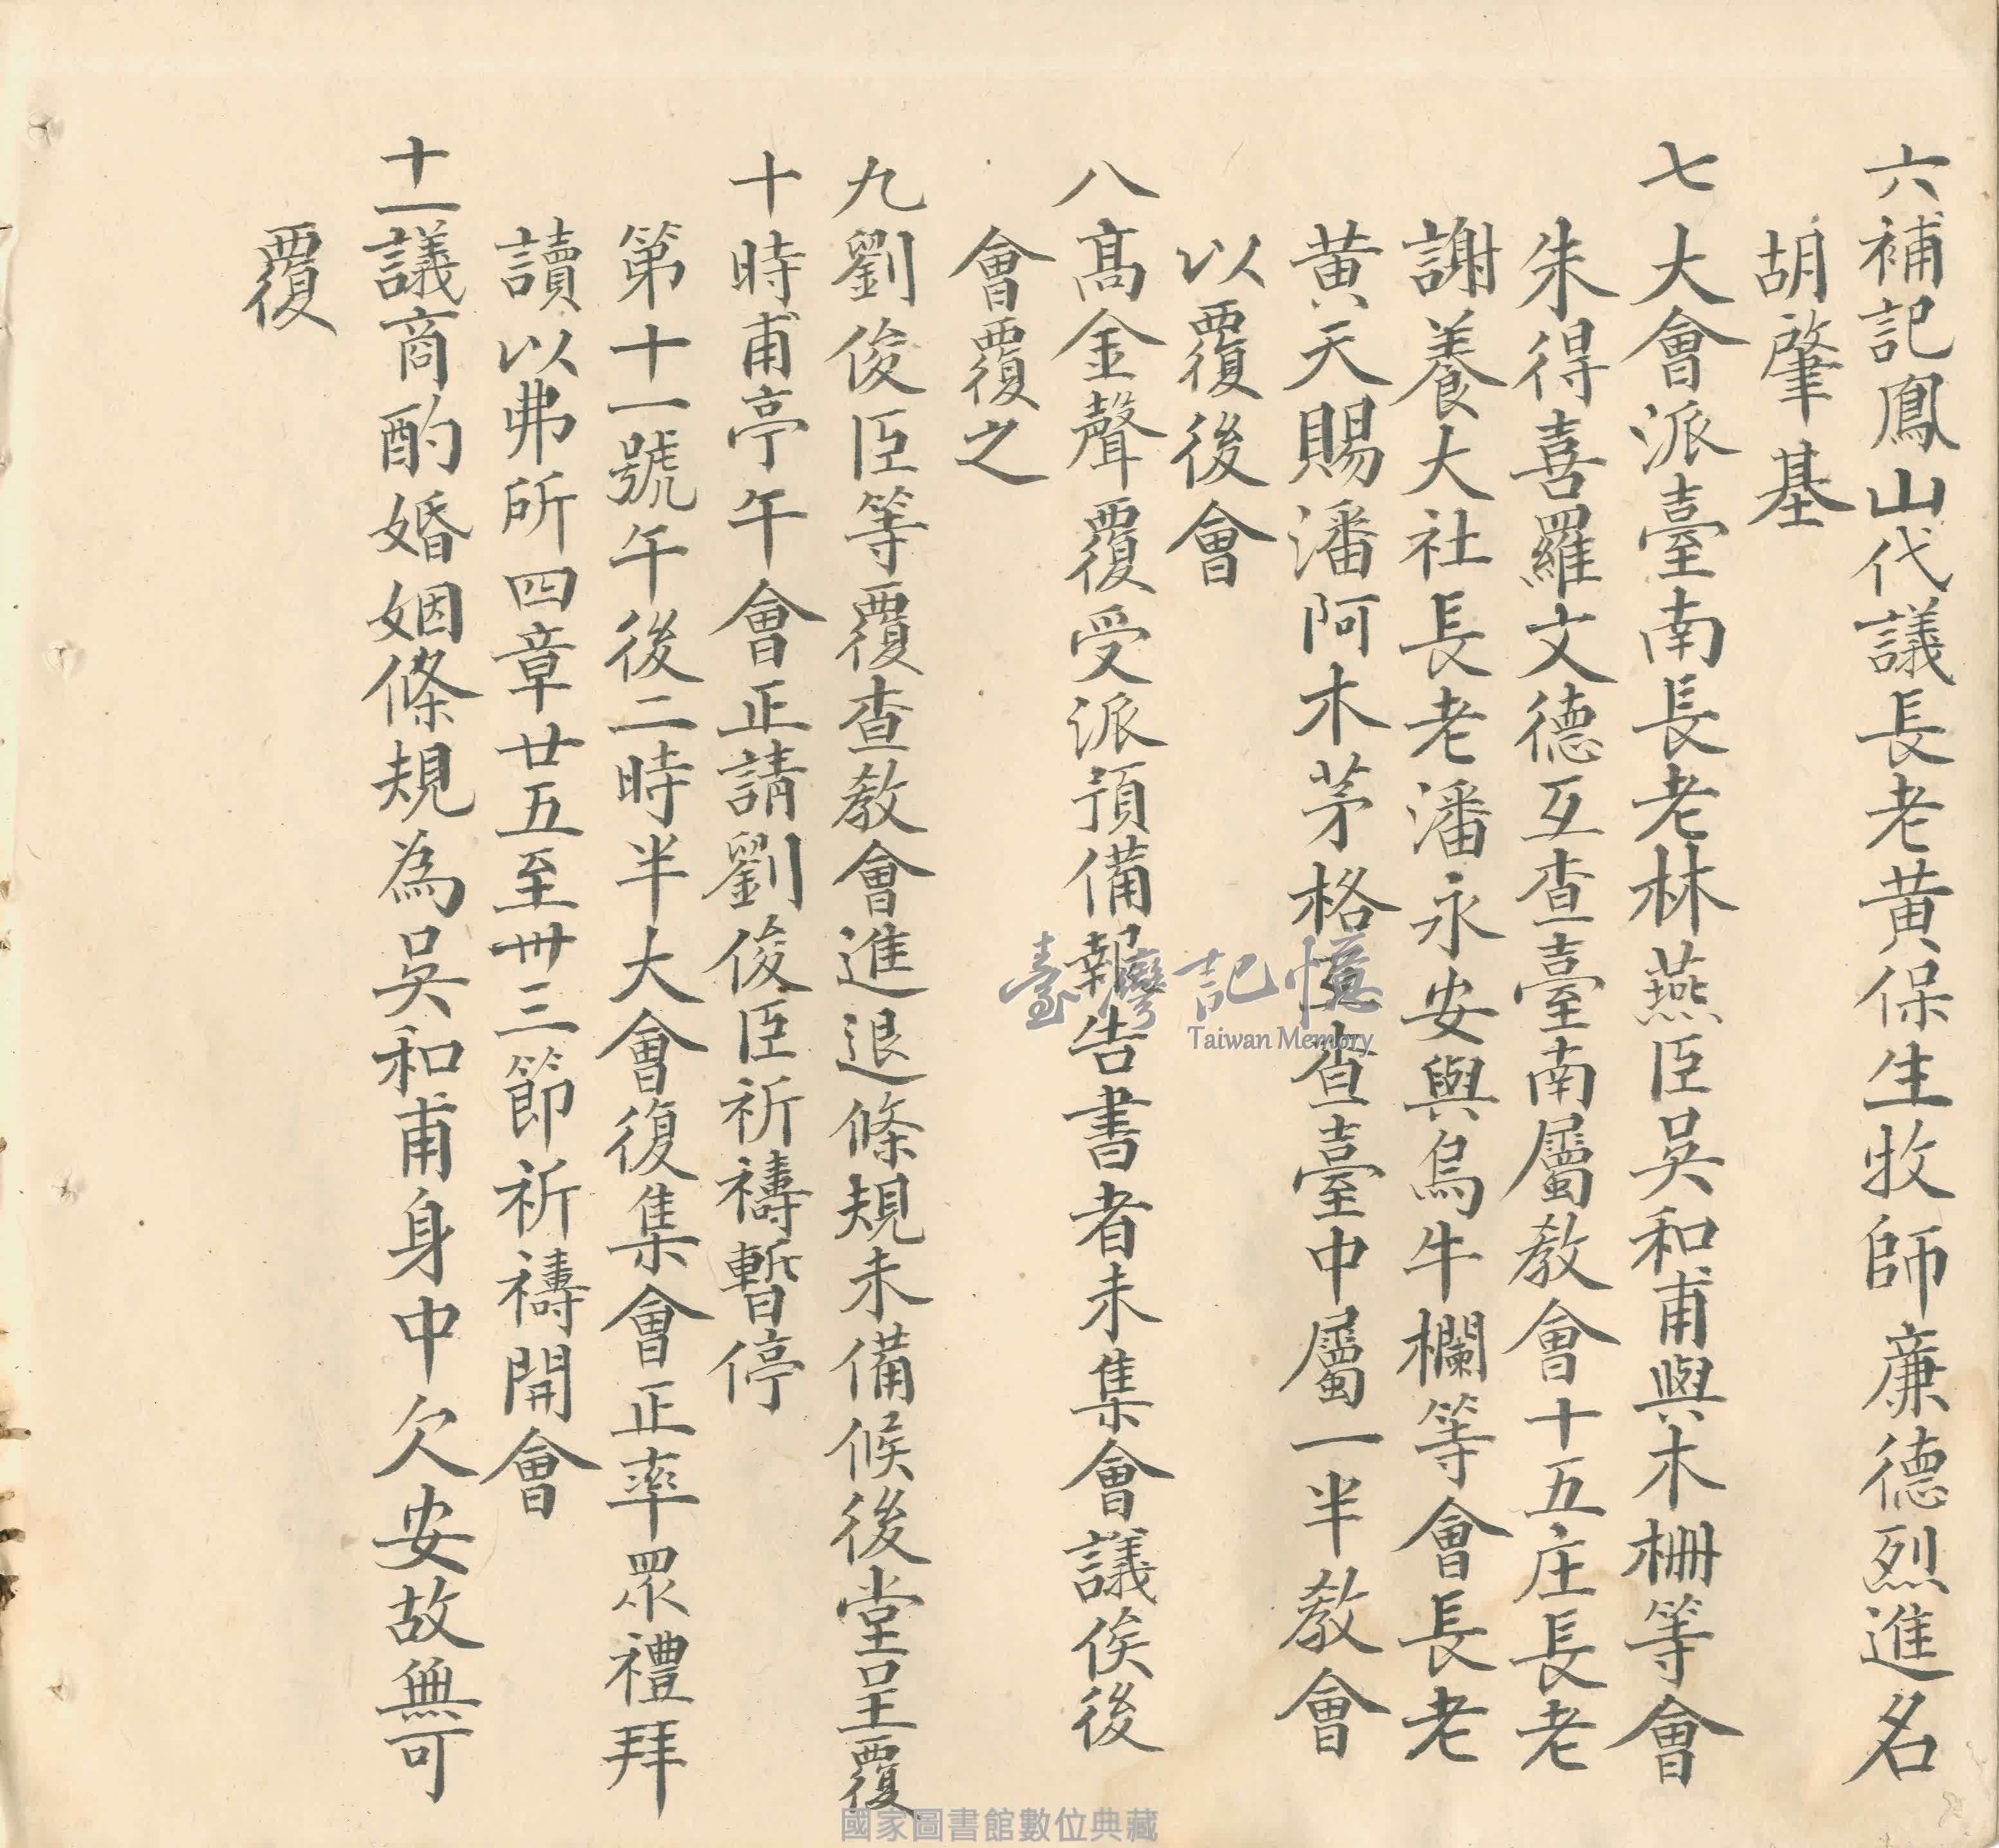 六補記鳳山代議長老黄保生牧師廉德烈進名
胡肇基
七大會派臺南長老林燕臣吳和甫與木柵等會
朱得喜羅文德互查臺南屬教會十五庄長老
謝養大社長老潘永安與烏牛欄等會長老
黄天賜潘阿木茅格互查臺中屬一半教會
以覆後會
八髙金聲覆受派預備報告書者未集會議俟後
會覆之
九劉俊臣等覆查教會進退條規未備候後堂呈覆
十時甫亭午會正請劉俊臣祈禱暫停
第十一號午後二時半大會復集會正率眾禮拜
讀以弗所四章廿五至卅三節祈禱開會
十一議商酌婚姻條規為吳和甫身中欠安故無可
覆
臺灣記憶
Taiwan Memory
國家圖書館數位典藏